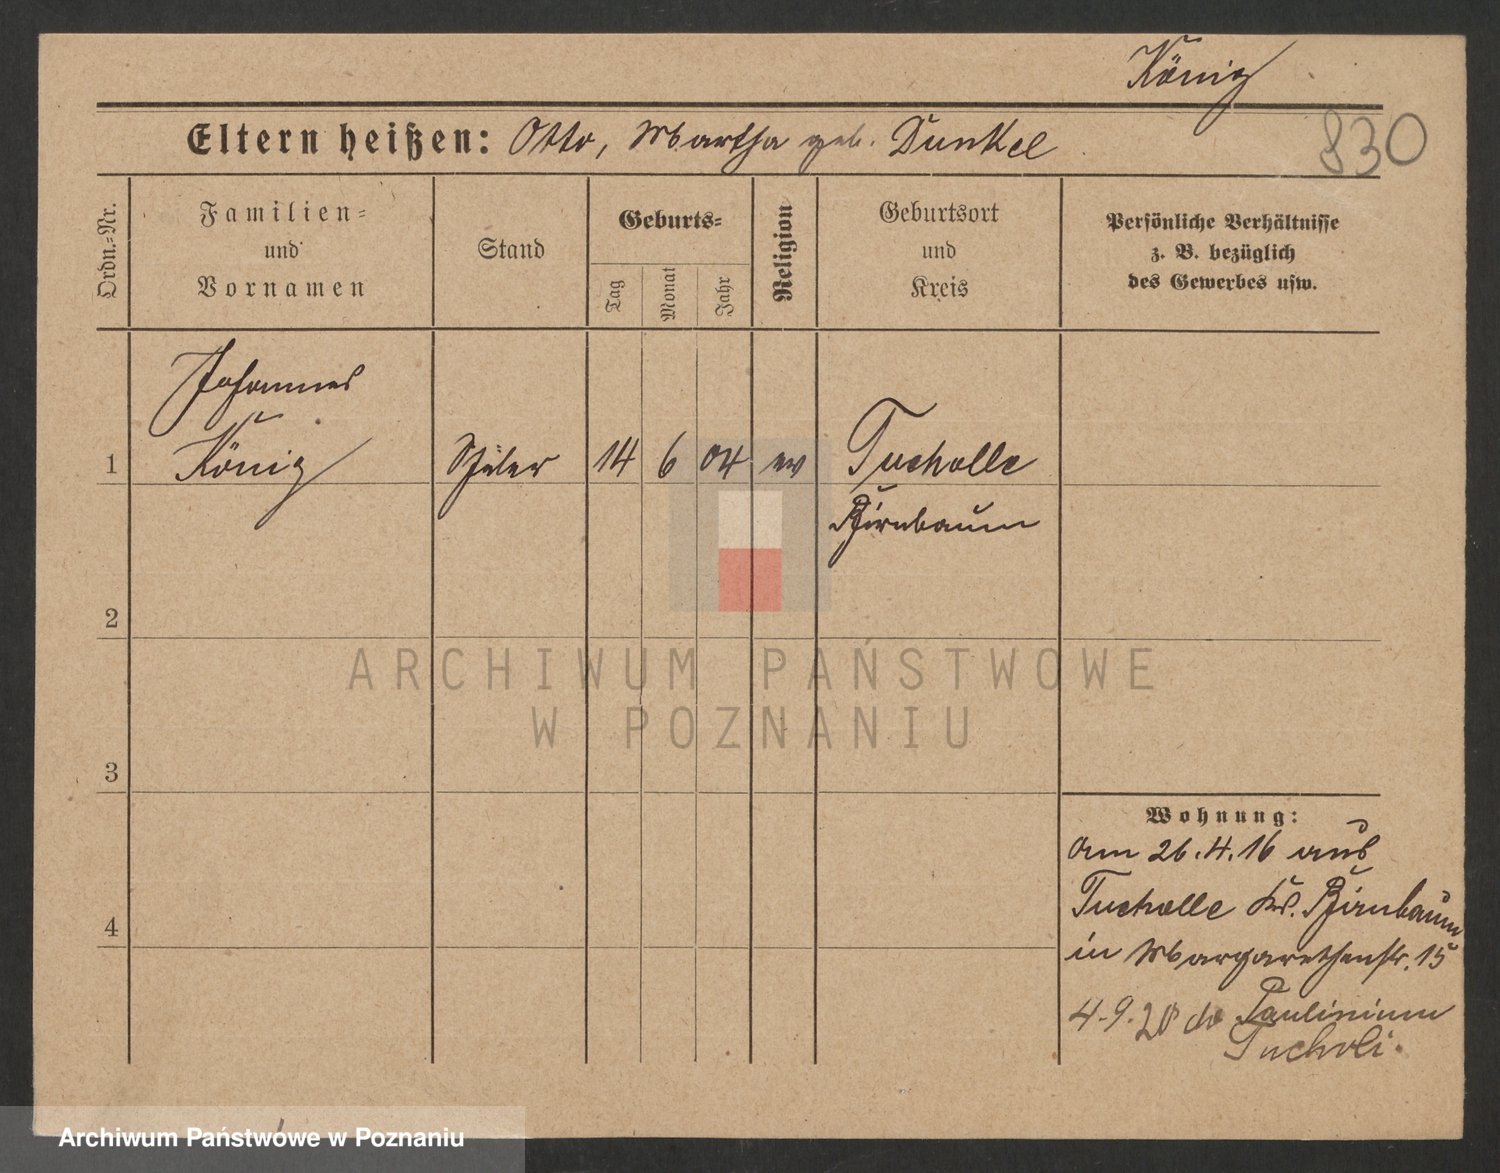 König
830
Eltern heißen: Otto, Martha geb. Dunkel
Ordn.=Nr.
Familien=
und
Vornamen
Stand
Geburts=
Tag
Monat
Jahr
Religion
Geburtsort
und
Kreis
Persönliche Verhältnisse
z. B. bezüglich
des Gewerbes usw.
Johannes
1 König Schüler 14 6 04 ev Tucholle
Birnbaum
2
3
4
Wohnung:
Am 26.4.16 aus
Tucholle Krs. Birnbaum
in Margarethenstr. 15
4.9.20 do Paulinium
Tucholi.
ARCHIWUM PAŃSTWOWE
W POZNANIU
Archiwum Państwowe w Poznaniu